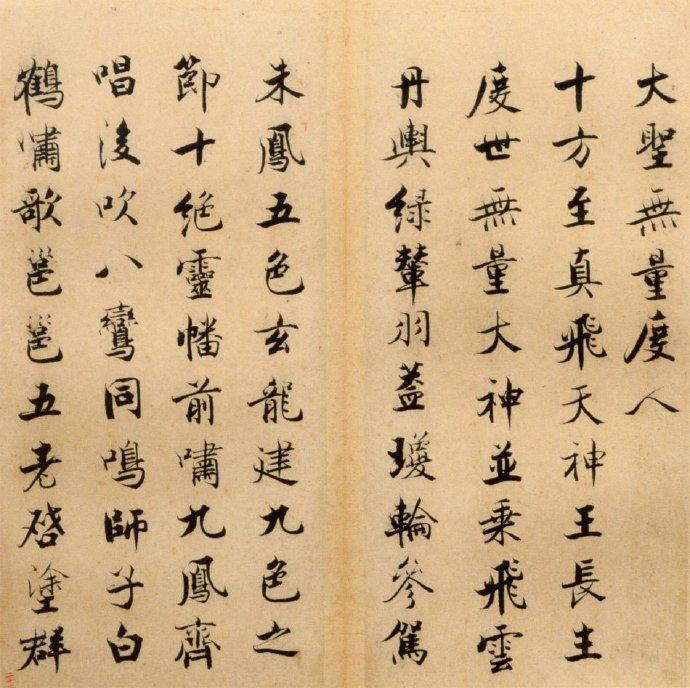 大聖無量度人
十方至真飛天神王長生
度世無量大神並乗飛雲
丹輿緑輦羽蓋瓊輪參駕
朱鳳五色玄龍建九色之
節十絶靈幡前嘯九鳳齊
唱後吹八鸞同鳴師子白
鶴嘯歌邕邕五老啓塗群